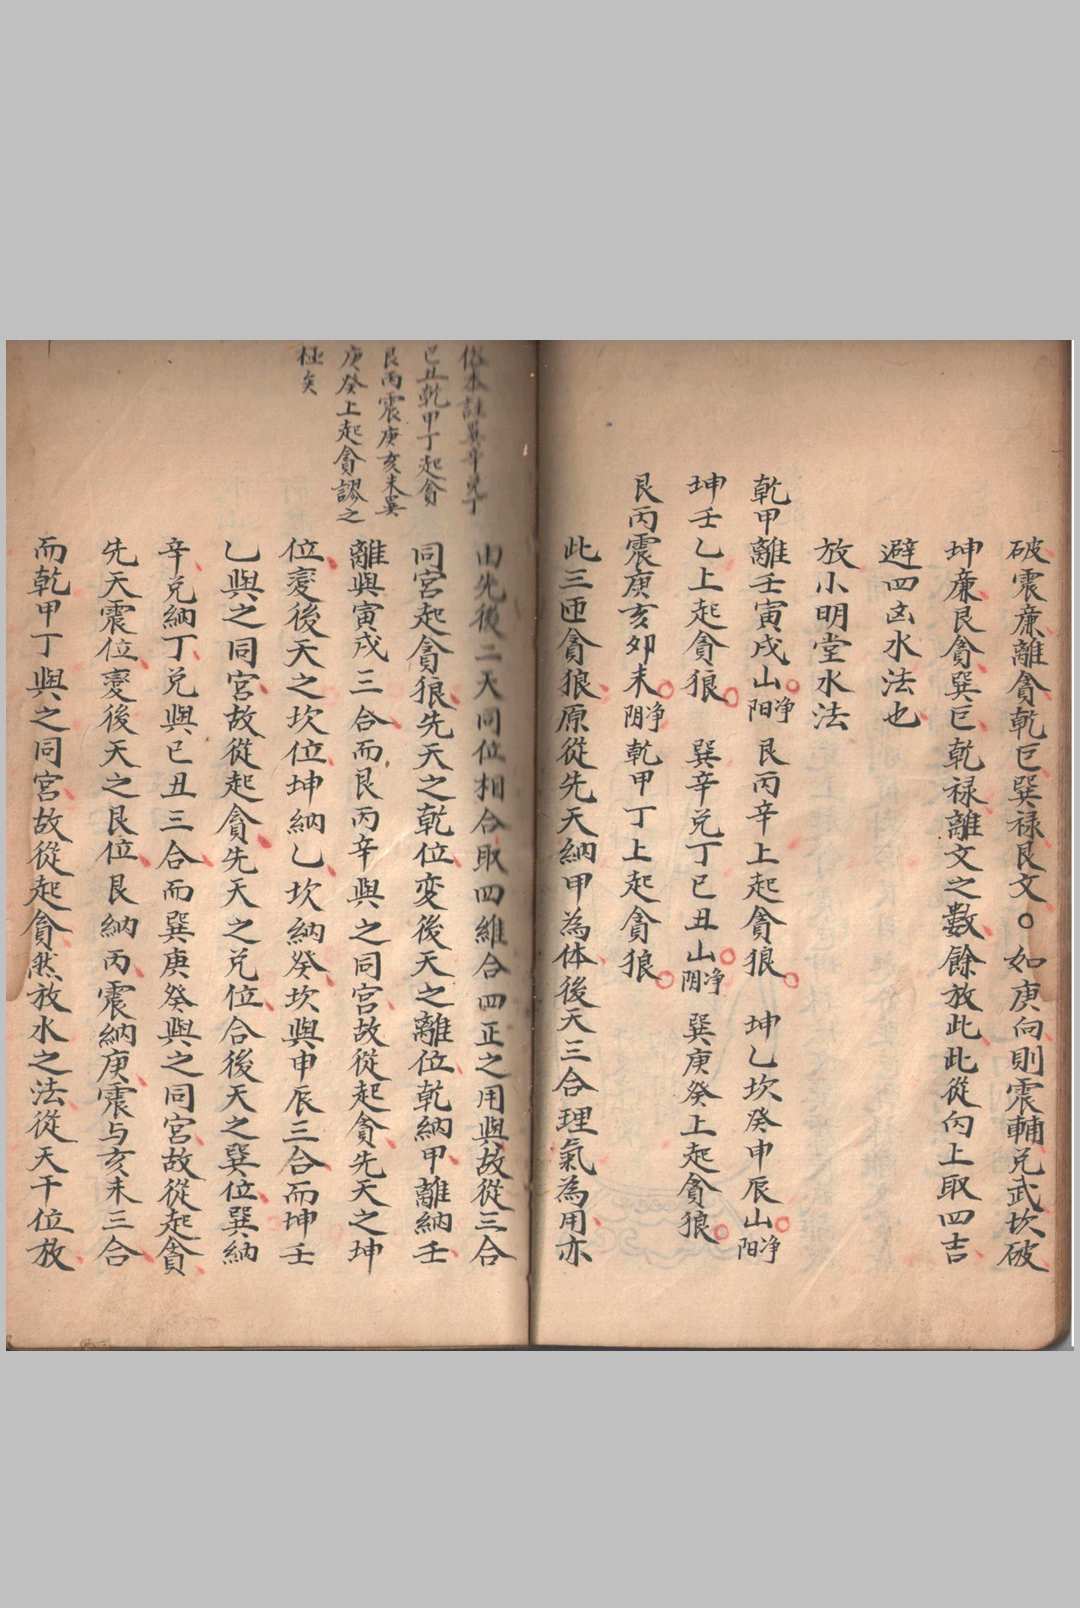 破震廉離貪乾巨巽禄艮文○如庚向則震輔兌武坎破
坤廉艮貪巽巨乾禄離文之數餘放此此從向上取四吉
避四凶水法也
放小明堂水法
乾甲離壬寅戌山净阳艮丙辛上起貪狼 坤乙坎癸申辰山净阳
坤壬乙上起貪狼 巽辛兌丁巳丑山净阴 巽庚癸上起貪狼
艮丙震庚亥夘末净阴乾甲丁上起貪狼
此三匝貪狼原從先天納甲為体後天三合理氣為用亦
俗本註巽辛兌丁
巳丑乾甲丁起貪
艮丙震庚亥末巽
庚癸上起貪謬之
極矣
由先後二天同位相合取四維合四正之用與故從三合
同宮起貪狼先天之乾位变後天之離位乾納甲離納壬
離與寅戌三合而艮丙辛與之同宮故從起貪先天之坤
位变後天之坎位坤納乙坎納癸坎與申辰三合而坤壬
乙與之同宮故從起貪先天之兌位合後天之巽位巽納
辛兌納丁兌與巳丑三合而巽庚癸與之同宮故從起貪
先天震位变後天之艮位艮納丙震納庚震与亥末三合
而乾甲丁與之同宮故從起貪然放水之法從天干位放